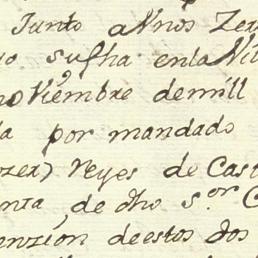 Junto aVnos Zer
su fha enla Vi
noViembre demill
por mandado
Reyes de Cast
de dho s.or
enzión deestos dos